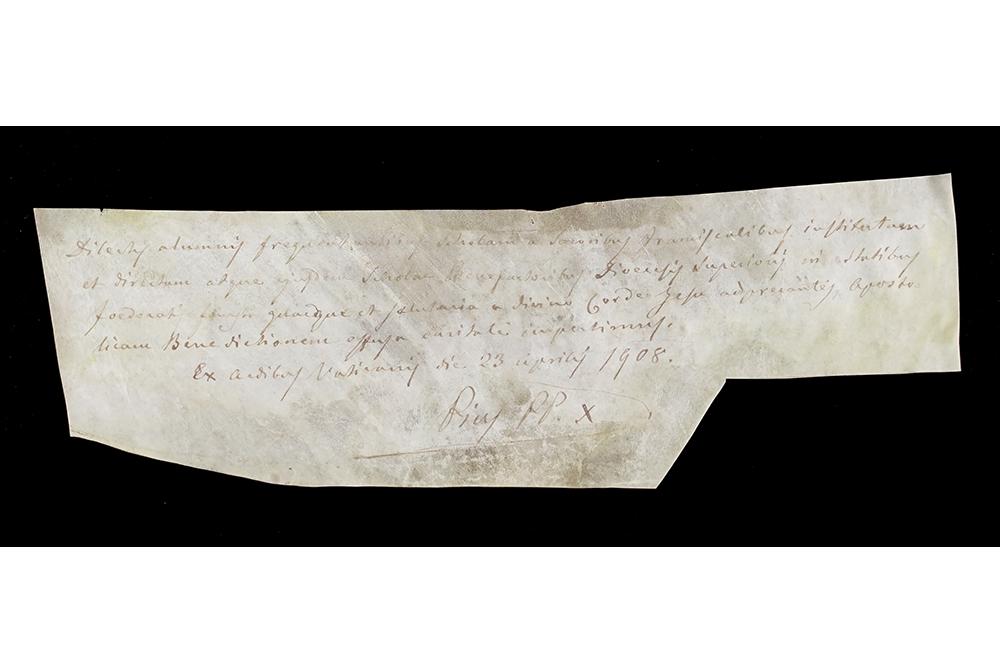 Dilectis alumnis frequentantibus Scholam a Sororibus Franciscalibus institutam
et directam atque ejusdem Scholae Benefactoribus Dioecesis Superioris in Statibus
foederatis fausta quaeque et salutaria a divino Corde Jesu adprecantes, Aposto
licam Benedictionem effusa caritate impertimus.
Ex Aedibus Vaticanis die 23 Aprilis 1908.
Pius PP. X